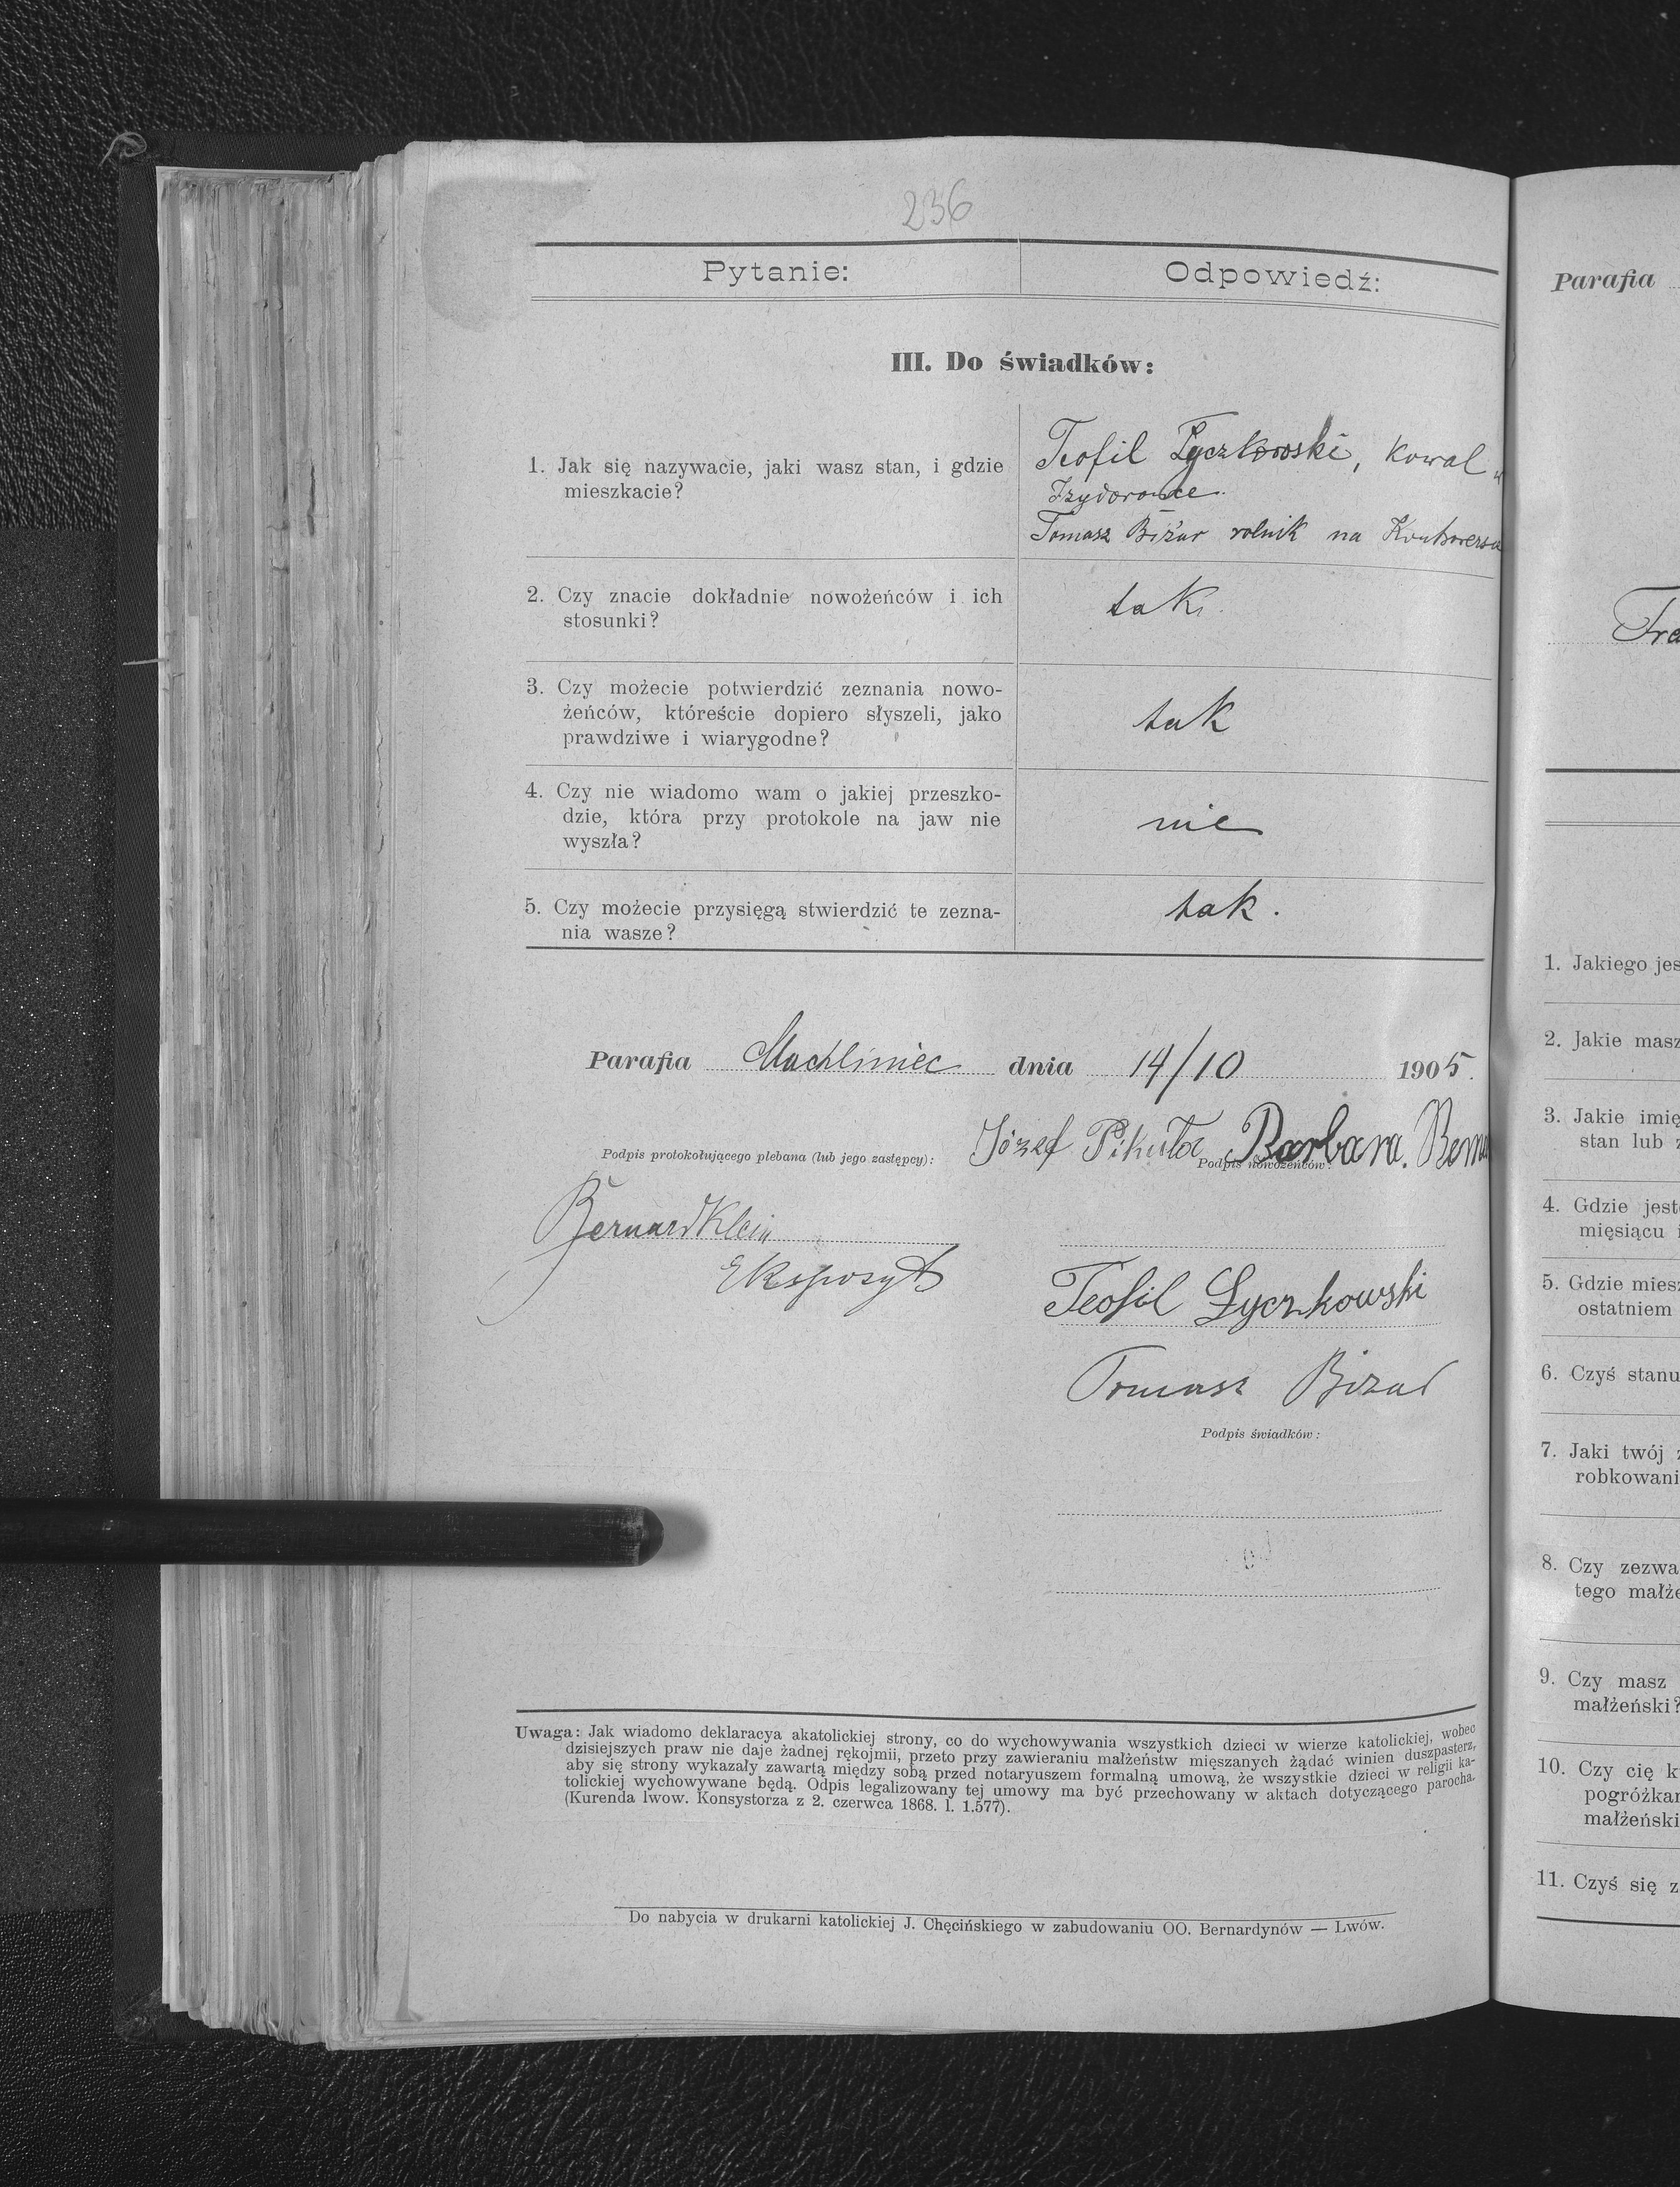 236
Pytanie:
Odpowiedź:
III. Do świadków:
1. Jak się nazywacie, jaki wasz stan, i gdzie
mieszkacie?
Teofil Łyczkowski, kowal w
Izydorowce.
Tomasz Biżar rolnik na
2. Czy znacie dokładnie nowożeńców i ich
stosunki?
tak.
3. Czy możecie potwierdzić zeznania nowo-
żeńców, któreście dopiero słyszeli, jako
prawdziwe i wiarygodne?
tak
4. Czy nie wiadomo wam o jakiej przeszko-
dzie, która przy protokole na jaw nie
wyszła?
nie
5. Czy możecie przysięgą stwierdzić te zezna-
nia wasze?
tak.
Parafia Machliniec dnia 14/10 1905.
Józef Pikuła Barbara.
Podpis protokołującego plebana (lub jego zastępcy):
Podpis nowożeńców:
Bernard Klein
Ekspozyt
Teofil Łyczkowski
Tomasz Bizar
Podpis świadków:
Uwaga: Jak wiadomo deklaracya akatolickiej strony, co do wychowywania wszystkich dzieci w wierze katolickiej, wobec
dzisiejszych praw nie daje żadnej rękojmii, przeto przy zawieraniu małżeństw mięszanych żądać winien duszpasterz,
aby się strony wykazały zawartą między sobą przed notaryuszem formalną umową, że wszystkie dzieci w religii ka-
tolickiej wychowywane będą. Odpis legalizowany tej umowy ma być przechowany w aktach dotyczącego parocha.
(Kurenda lwow. Konsystorza z 2. czerwca 1868. l. 1.577).
Do nabycia w drukarni katolickiej J. Chęcińskiego w zabudowaniu OO. Bernardynów — Lwów.
Parafia
Fra
1. Jakiego jes
2. Jakie masz
3. Jakie imię
stan lub z
4. Gdzie jest
mięsiącu i
5. Gdzie miesz
ostatniem
6. Czyś stanu
7. Jaki twój z
robkowani
8. Czy zezwa
tego małże
9. Czy masz
małżeński?
10. Czy cię k
pogróżkam
małżeński
11. Czyś się z